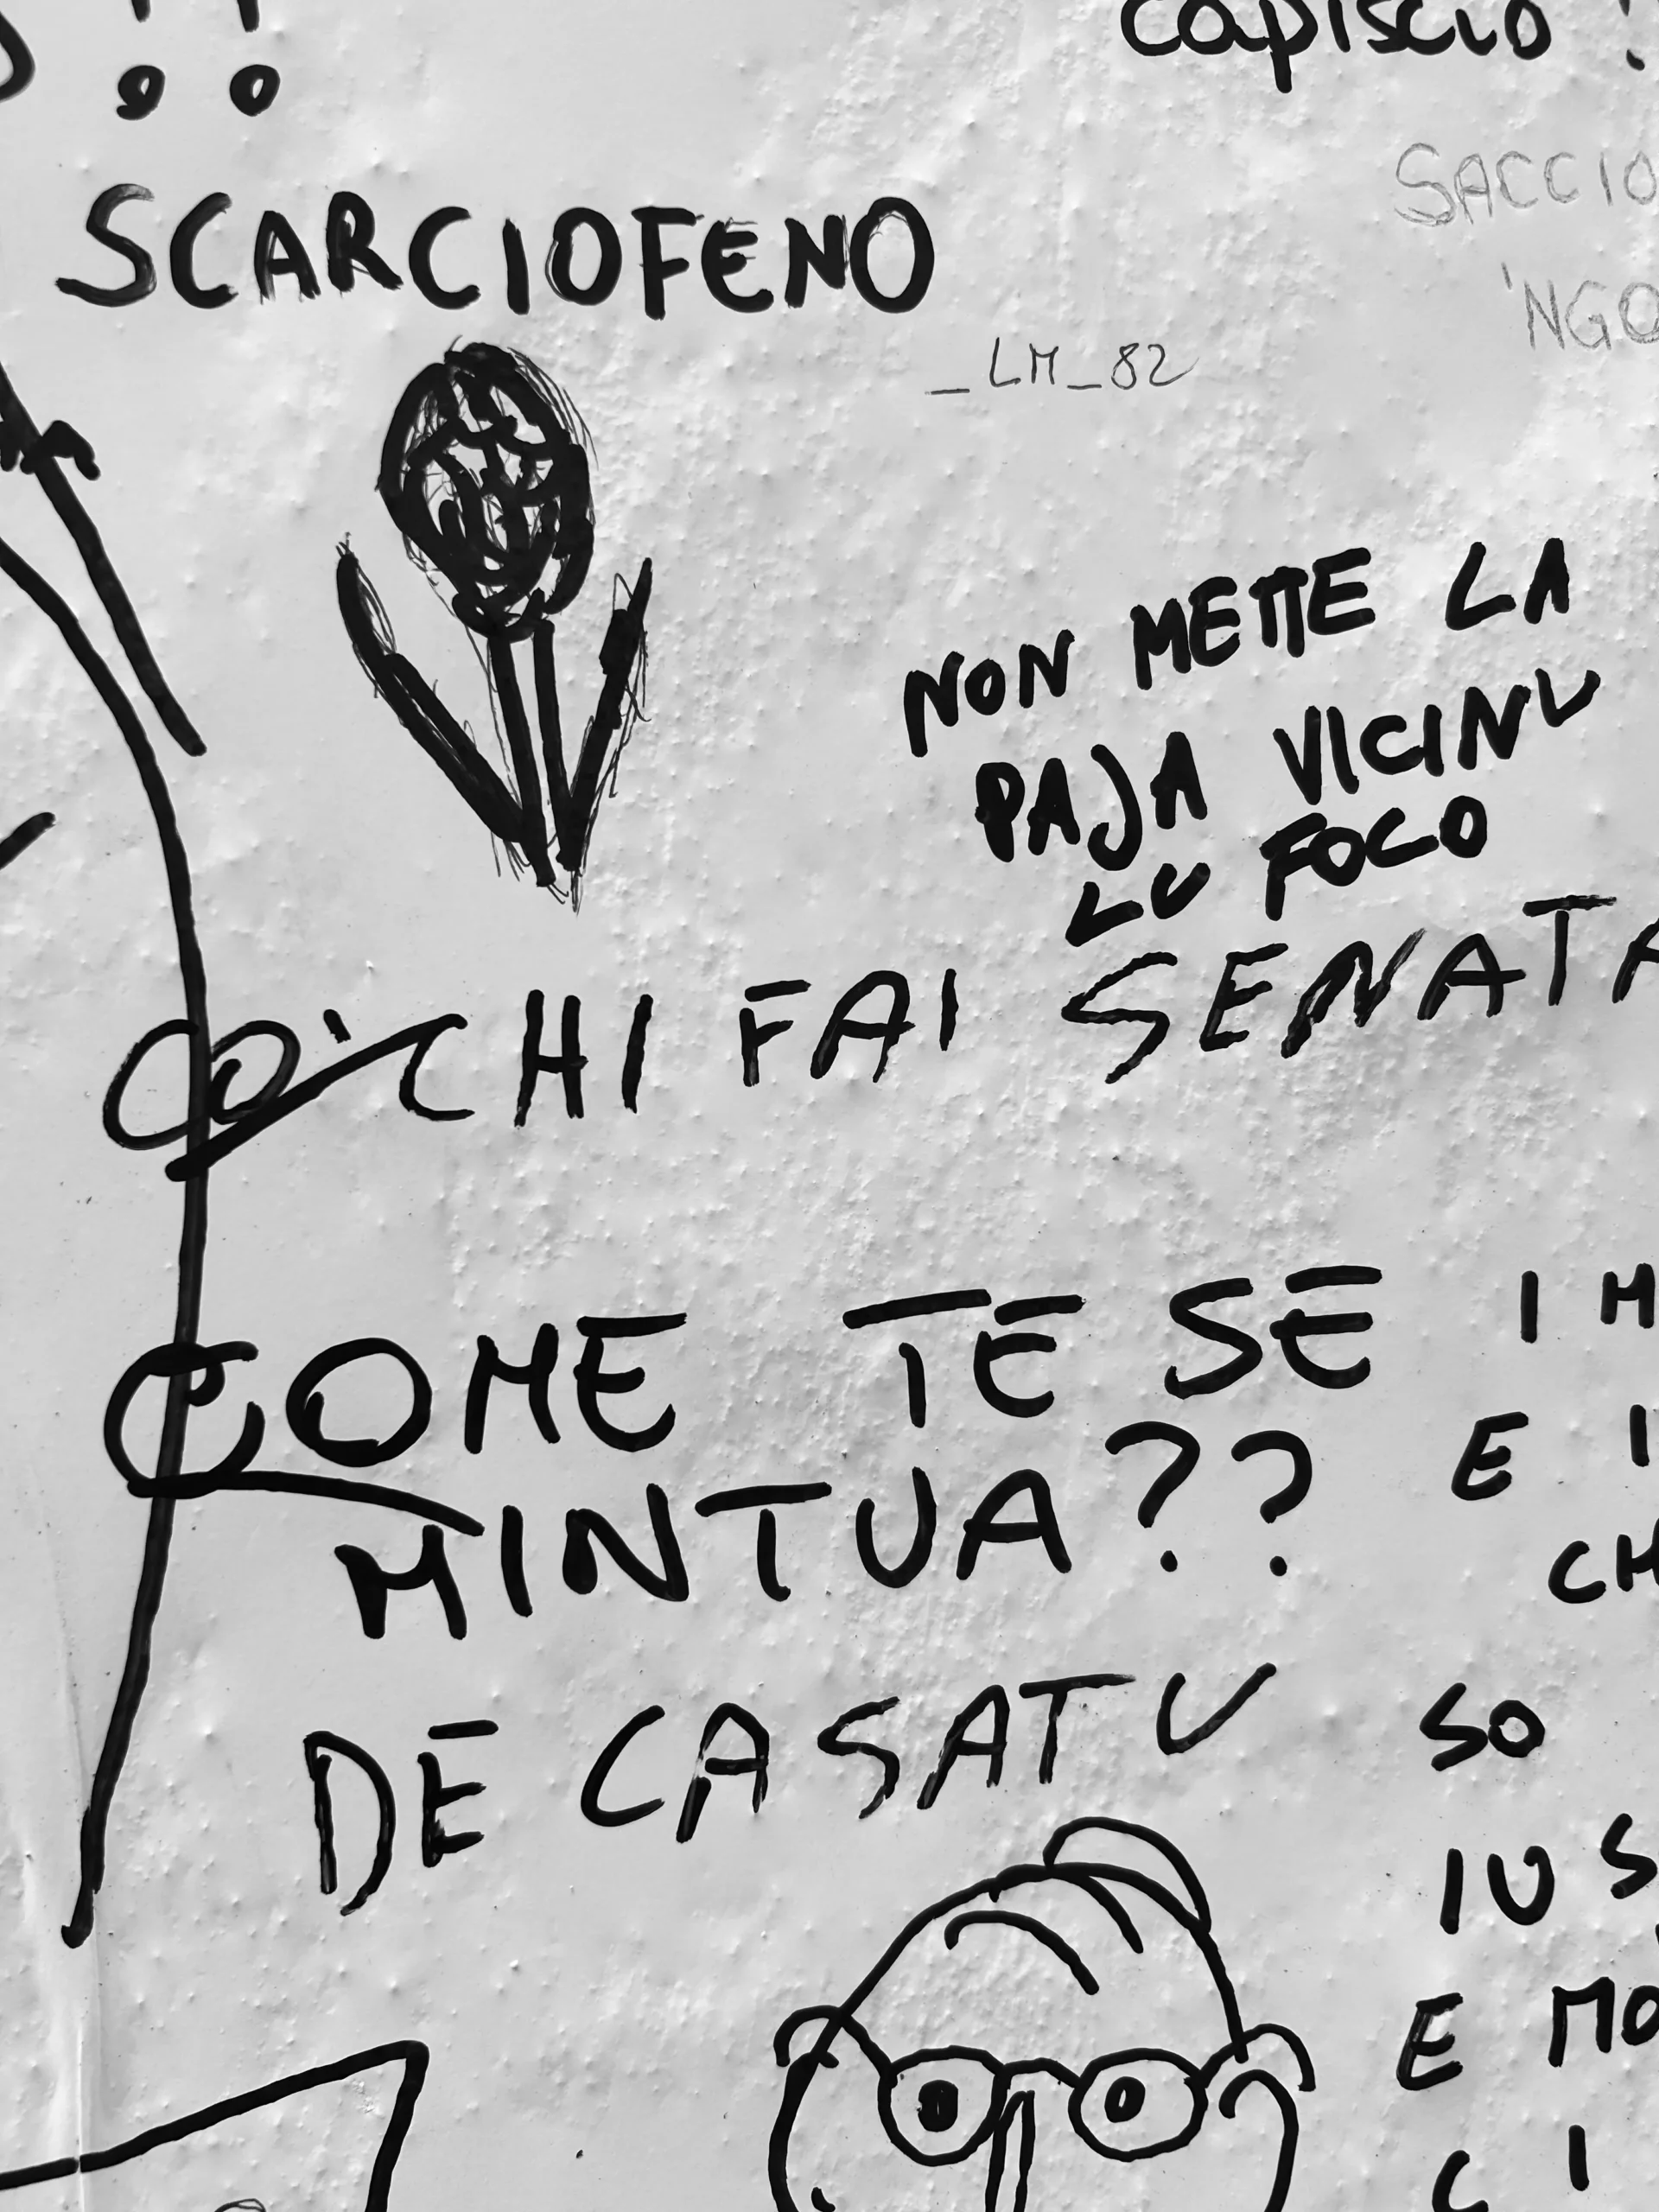 capiscio!
SCARCIOFENO
SACCIO
'NGO
_LM_82
NON METTE LA
PAJA VICINU
LU FOCO
CO' CHI FAI SENATA
COME TE SE
MINTUA??
DE CASATU
I M
E I
CH
SO
IU S
E MO
C I